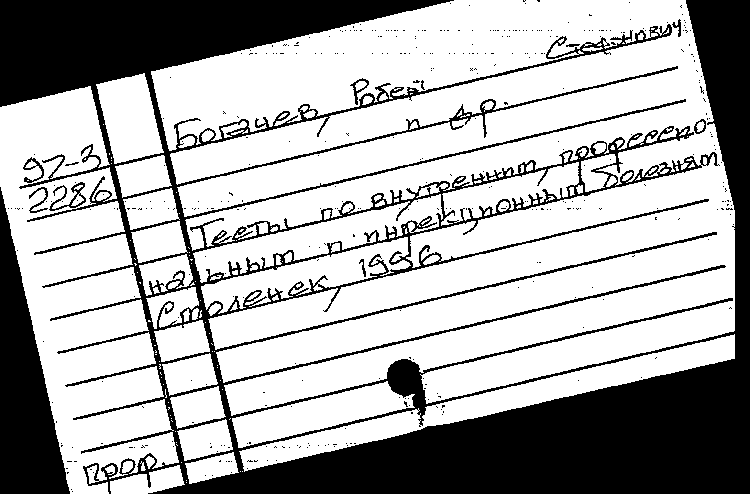 Богачев, Роберт Стефанович
и др.
97-3
2286
Тесты по внутренним, профессио-
нальным и инфекционным болезням
Смоленск, 1996.
проф.